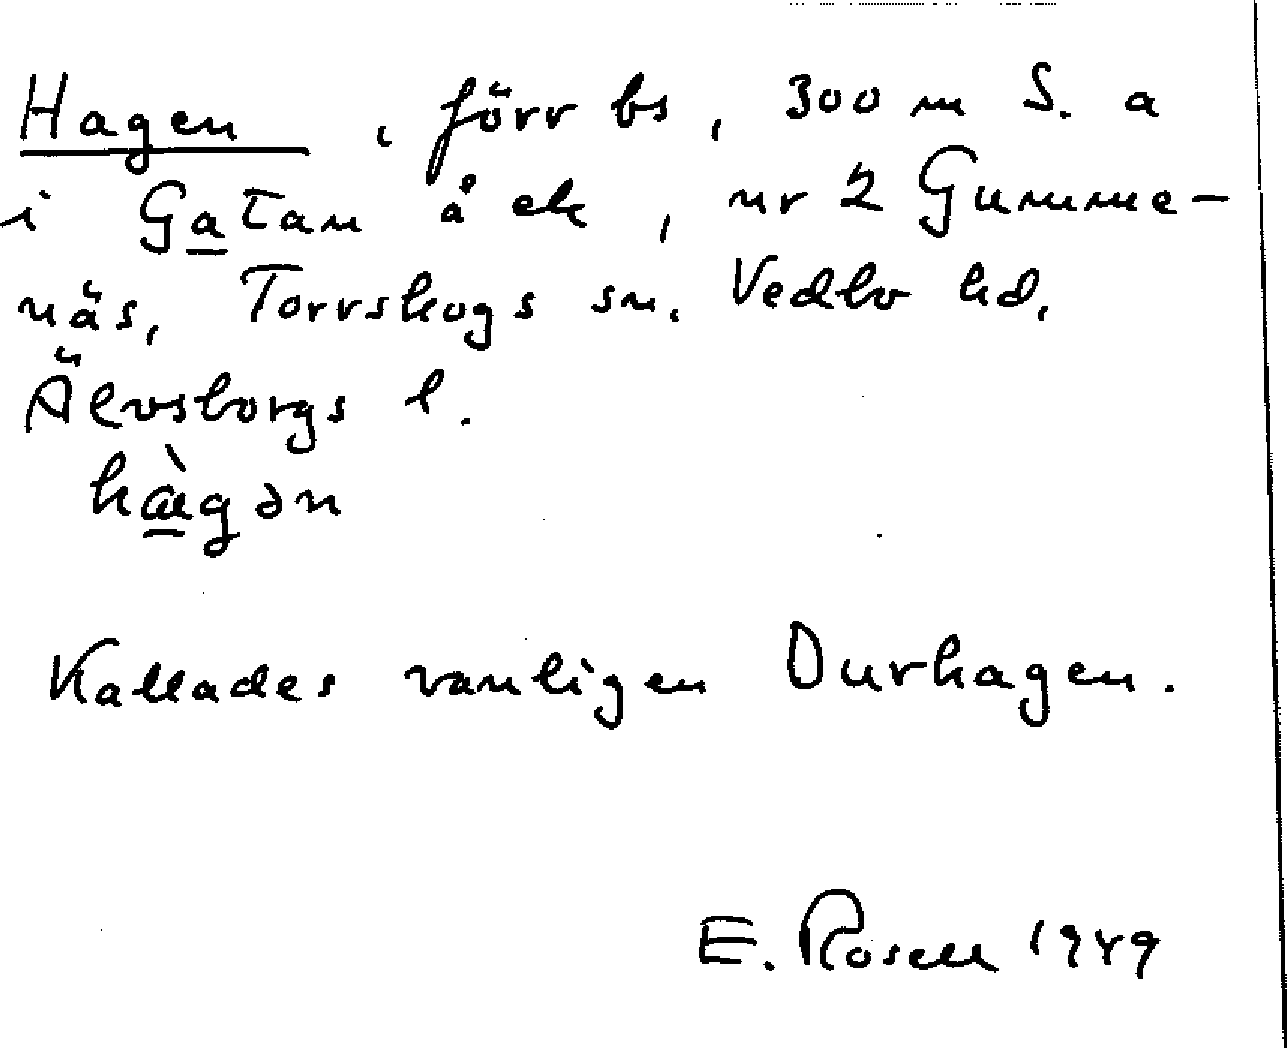 Hagen, förr bs, 300 m S. a
i Gatan å ek, nr 2 Gumme-
näs, Torrskogs sn. Vedbo hd,
Älvsborgs l.
hàgən
Kallades vanligen Durhagen.
E. Rosell 1949